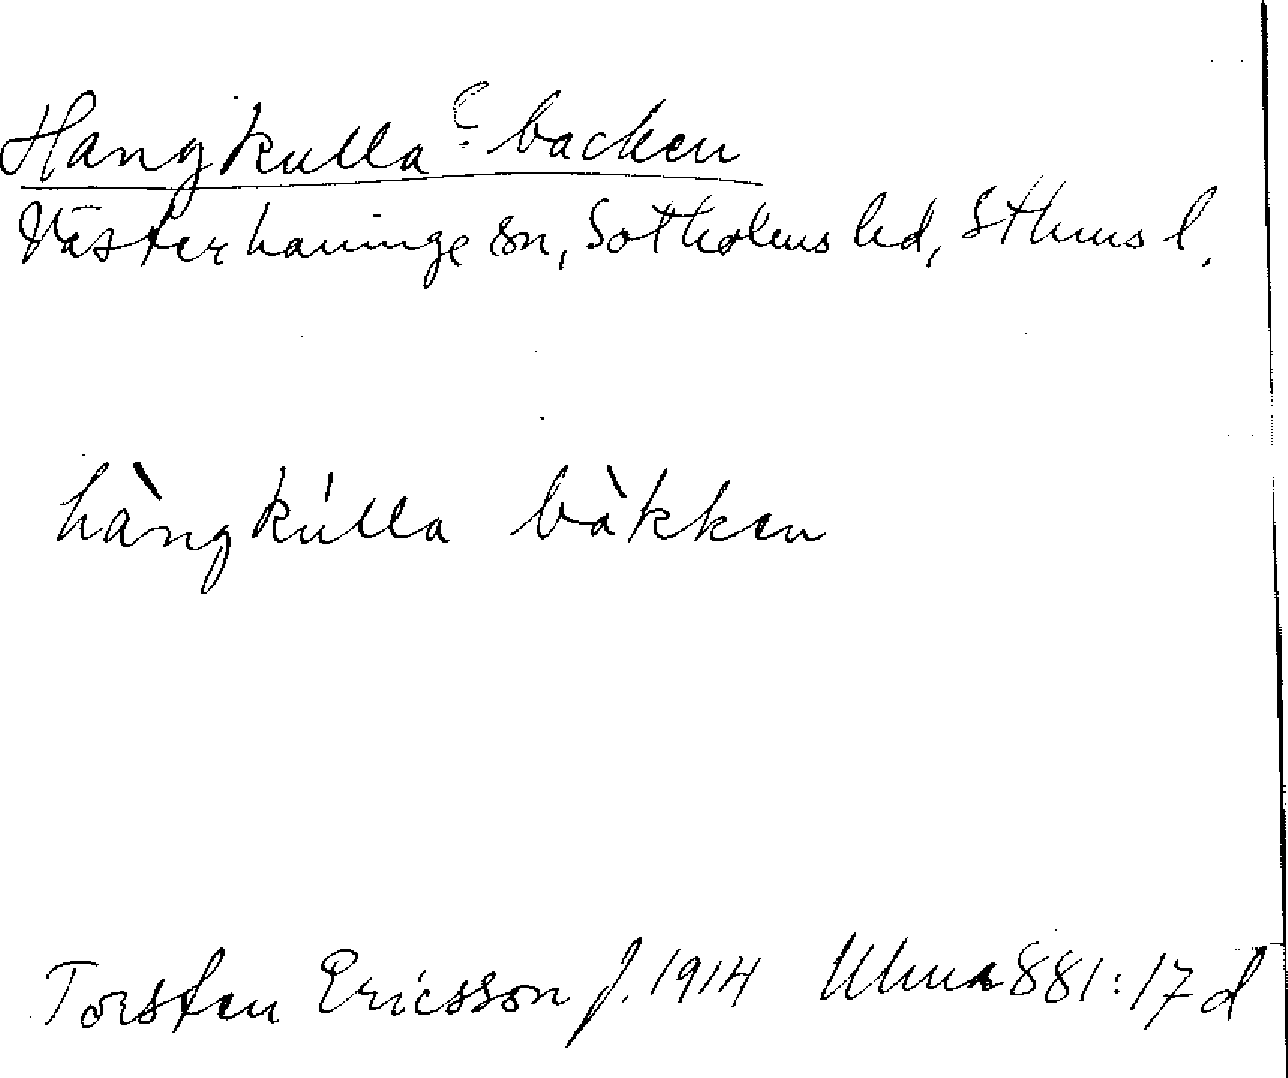 Hangkulla? backen
Västerhaninge sn, Sotholms hd, Sthms l.
hàngkúlla bàkken
Torsten Ericsson f. 1914 Ulma 881:17 d